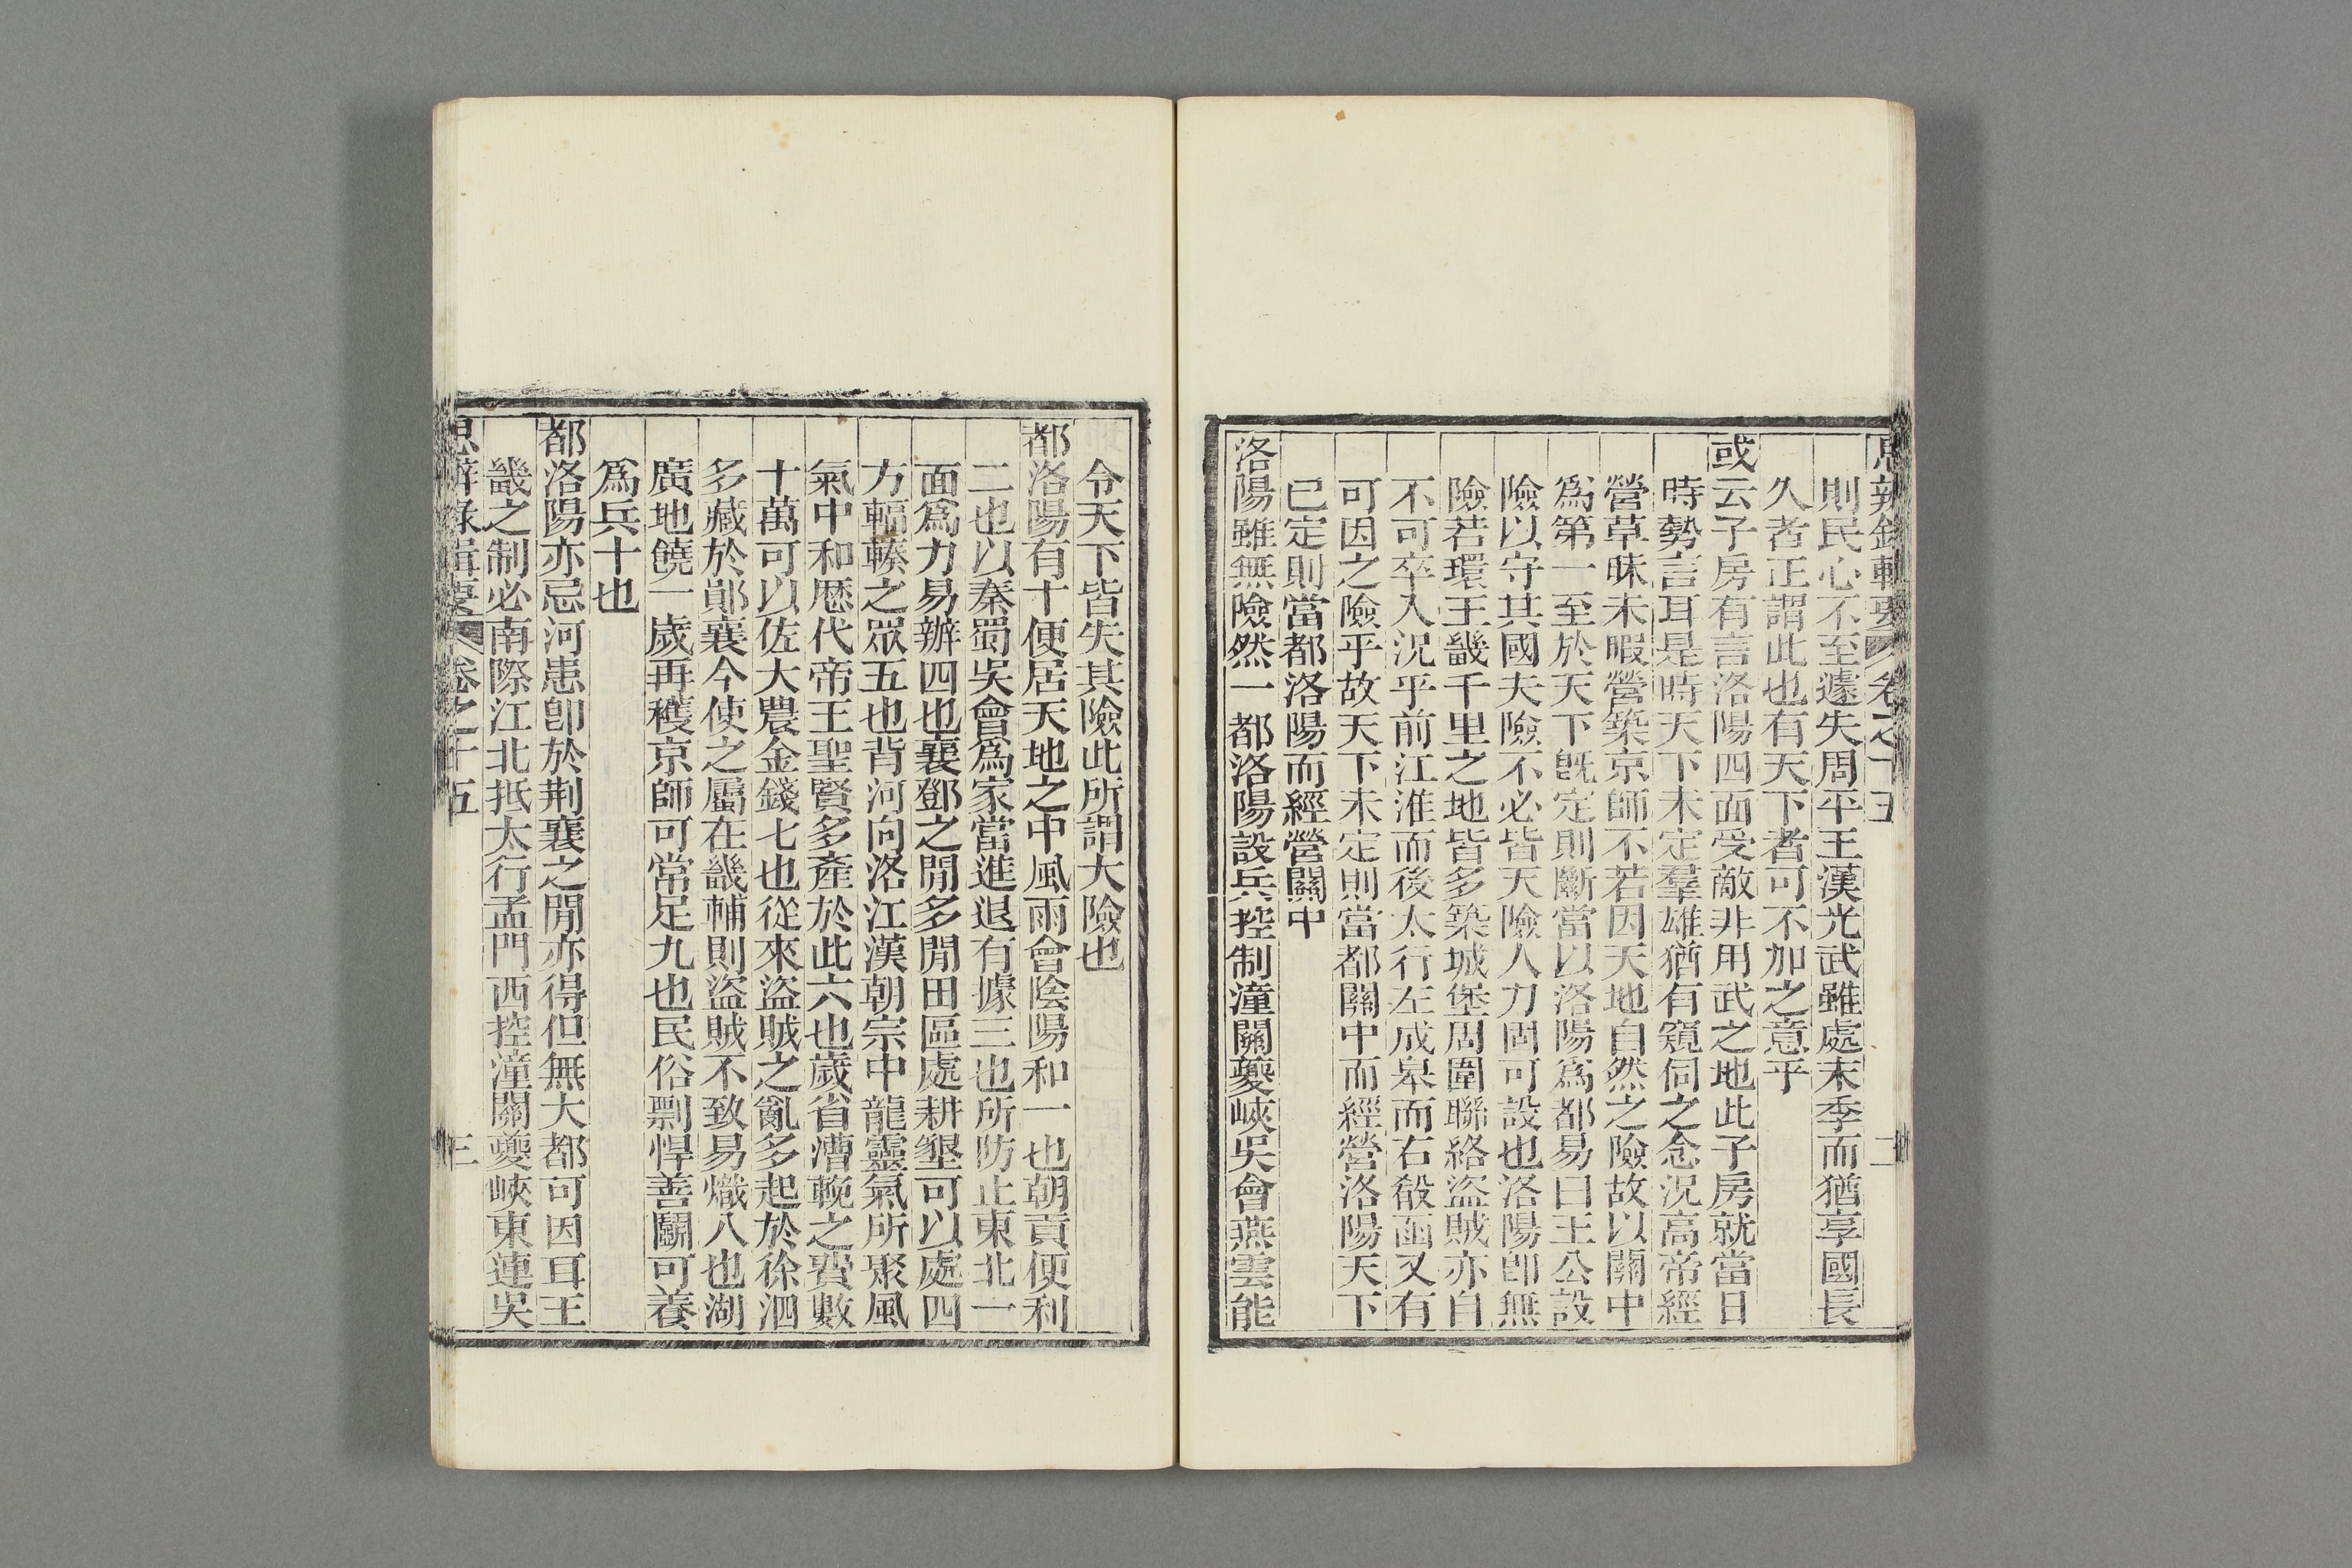 思辨錄輯要 卷之十五 二
則民心不至遽失周平王漢光武雖處末季而猶享國長
久者正謂此也有天下者可不加之意乎
或云子房有言洛陽四面受敵非用武之地此子房就當日
時勢言耳是時天下未定羣雄猶有窺伺之念況高帝經
營草昧未暇營築京師不若因天地自然之險故以關中
爲第一至於天下旣定則斷當以洛陽爲都易曰王公設
險以守其國夫險不必皆天險人力固可設也洛陽卽無
險若環王畿千里之地皆多築城堡周圍聯絡盜賊亦自
不可卒入況乎前江淮而後太行左成皋而右殽函又有
可因之險乎故天下未定則當都關中而經營洛陽天下
已定則當都洛陽而經營關中
洛陽雖無險然一都洛陽設兵控制潼關夔峽吳會燕雲能
令天下皆失其險此所謂大險也
都洛陽有十便居天地之中風雨會陰陽和一也朝貢便利
二也以秦蜀吳會爲家當進退有據三也所防止東北一
面爲力易辦四也襄鄧之閒多閒田區處耕墾可以處四
方輻輳之眾五也背河向洛江漢朝宗中龍靈氣所聚風
氣中和厯代帝王聖賢多產於此六也歲省漕輓之費數
十萬可以佐大農金錢七也從來盜賊之亂多起於徐泗
多藏於鄖襄今使之屬在畿輔則盜賊不致易熾八也湖
廣地饒一歲再穫京師可常足九也民俗剽悍善鬭可養
爲兵十也
都洛陽亦忌河患卽於荆襄之閒亦得但無大都可因耳王
畿之制必南際江北抵太行孟門西控潼關夔峽東連吳
思辨錄輯要 卷之十五 三